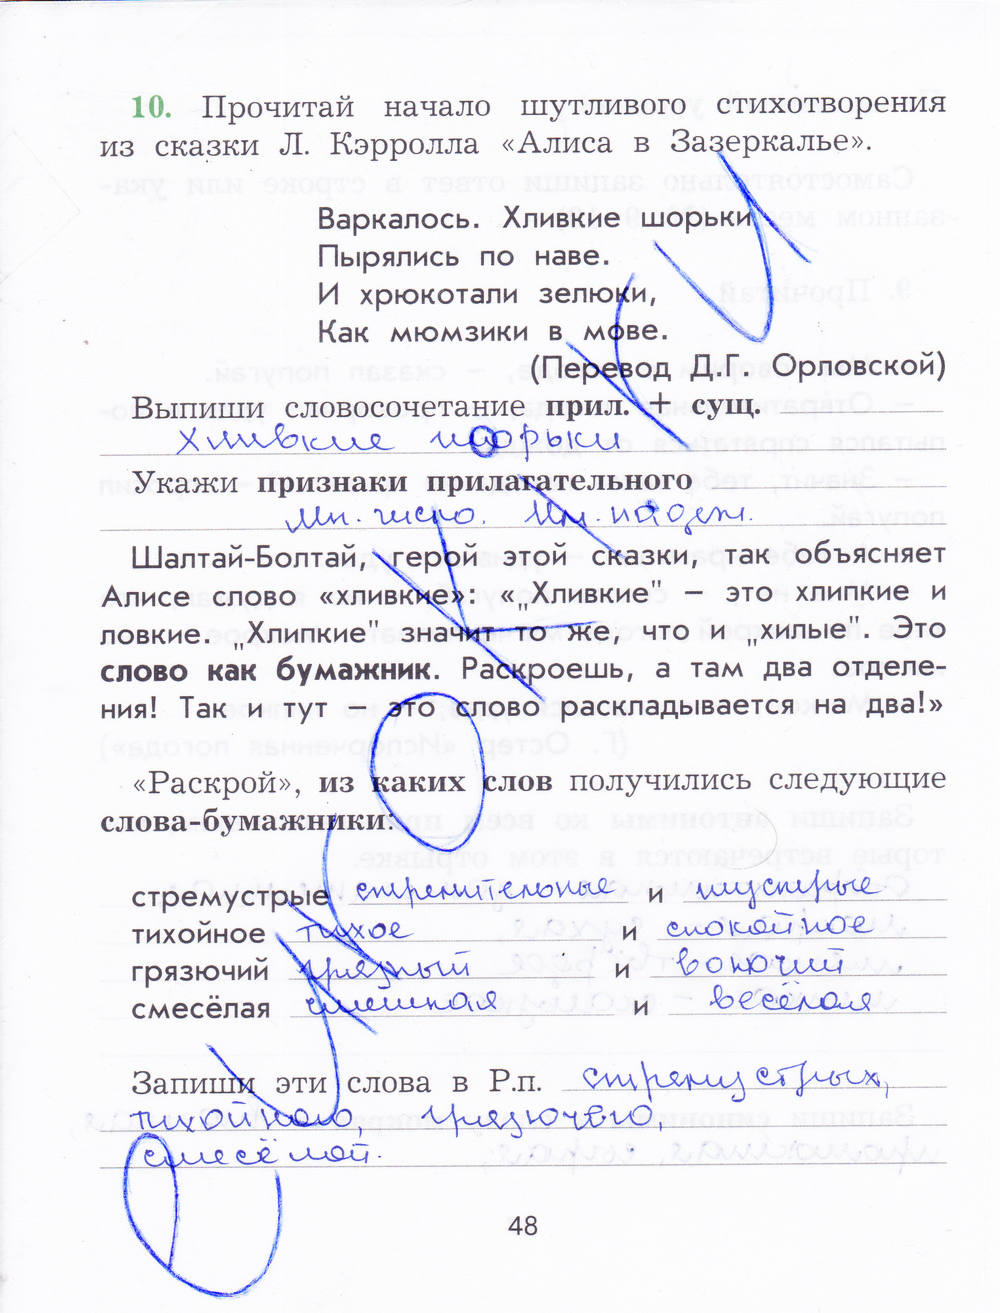 10. Прочитай начало шутливого стихотворения
из сказки Л. Кэрролла «Алиса в Зазеркалье».
Варкалось. Хливкие шорьки
Пырялись по наве.
И хрюкотали зелюки,
Как мюмзики в мове.
(Перевод Д.Г. Орловской)
Выпиши словосочетание прил. + сущ.
хливкие шорьки
Укажи признаки прилагательного
Мн. число. Им. падеж.
Шалтай-Болтай, герой этой сказки, так объясняет
Алисе слово «хливкие»: «„Хливкие" – это хлипкие и
ловкие. „Хлипкие" значит то же, что и „хилые". Это
слово как бумажник. Раскроешь, а там два отделе-
ния! Так и тут – это слово раскладывается на два!»
«Раскрой», из каких слов получились следующие
слова-бумажники:
стремустрые стремительные и шустрые
тихойное тихое и спокойное
грязючий грязный и вонючий
смесёлая смешная и весёлая
Запиши эти слова в Р.п. стремустрых,
тихойного, грязючего,
смесёлой.
48